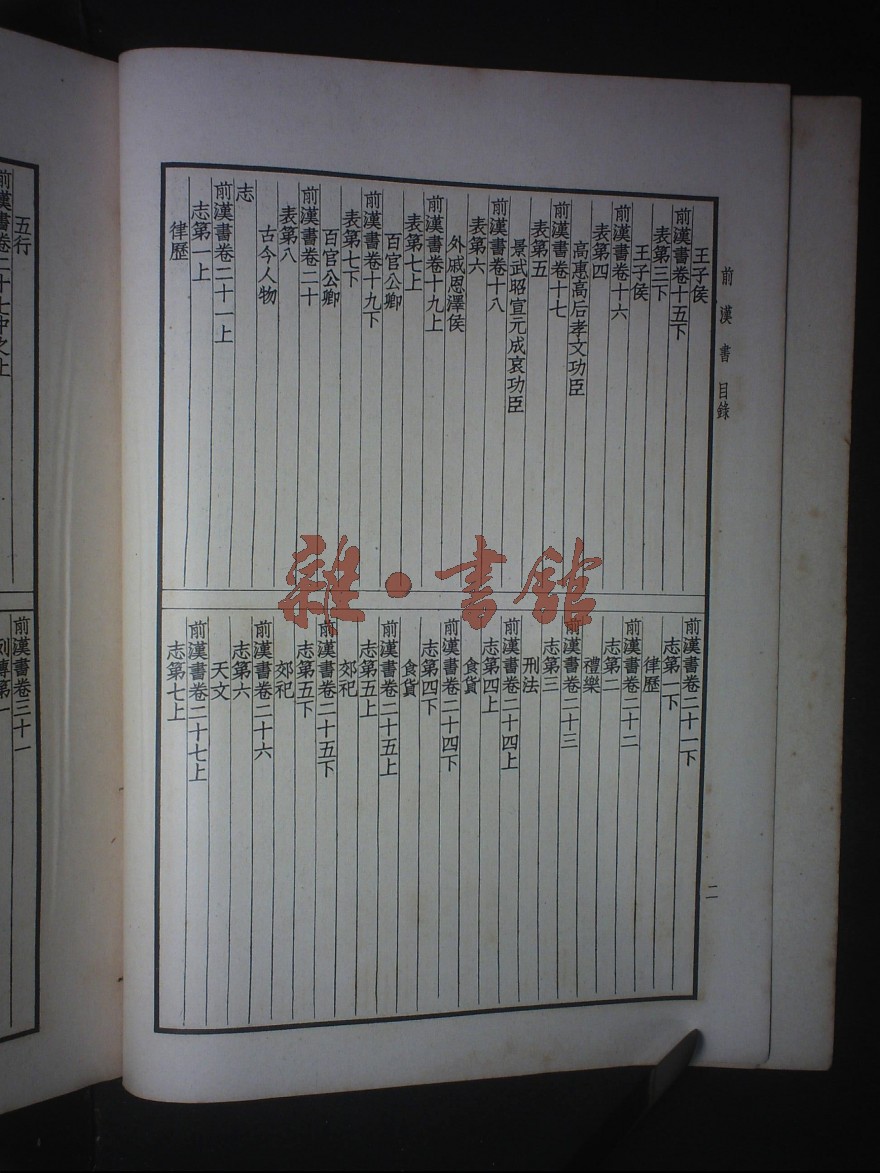 前漢書目錄
二
王子侯
前漢書卷十五下
表第三下
王子侯
前漢書卷十六
表第四
高惠高后孝文功臣
前漢書卷十七
表第五
景武昭宣元成哀功臣
前漢書卷十八
表第六
外戚恩澤侯
前漢書卷十九上
表第七上
百官公卿
前漢書卷十九下
表第七下
百官公卿
前漢書卷二十
表第八
古今人物
志
前漢書卷二十一上
志第一上
律歷
前漢書卷二十一下
志第一下
律歷
前漢書卷二十二
志第二
禮樂
前漢書卷二十三
志第三
刑法
前漢書卷二十四上
志第四上
食貨
前漢書卷二十四下
志第四下
食貨
前漢書卷二十五上
志第五上
郊祀
前漢書卷二十五下
志第五下
郊祀
前漢書卷二十六
志第六
天文
前漢書卷二十七上
志第七上
五行
前漢書卷二十七中之上
前漢書卷三十一
列傳第一
雜·書館